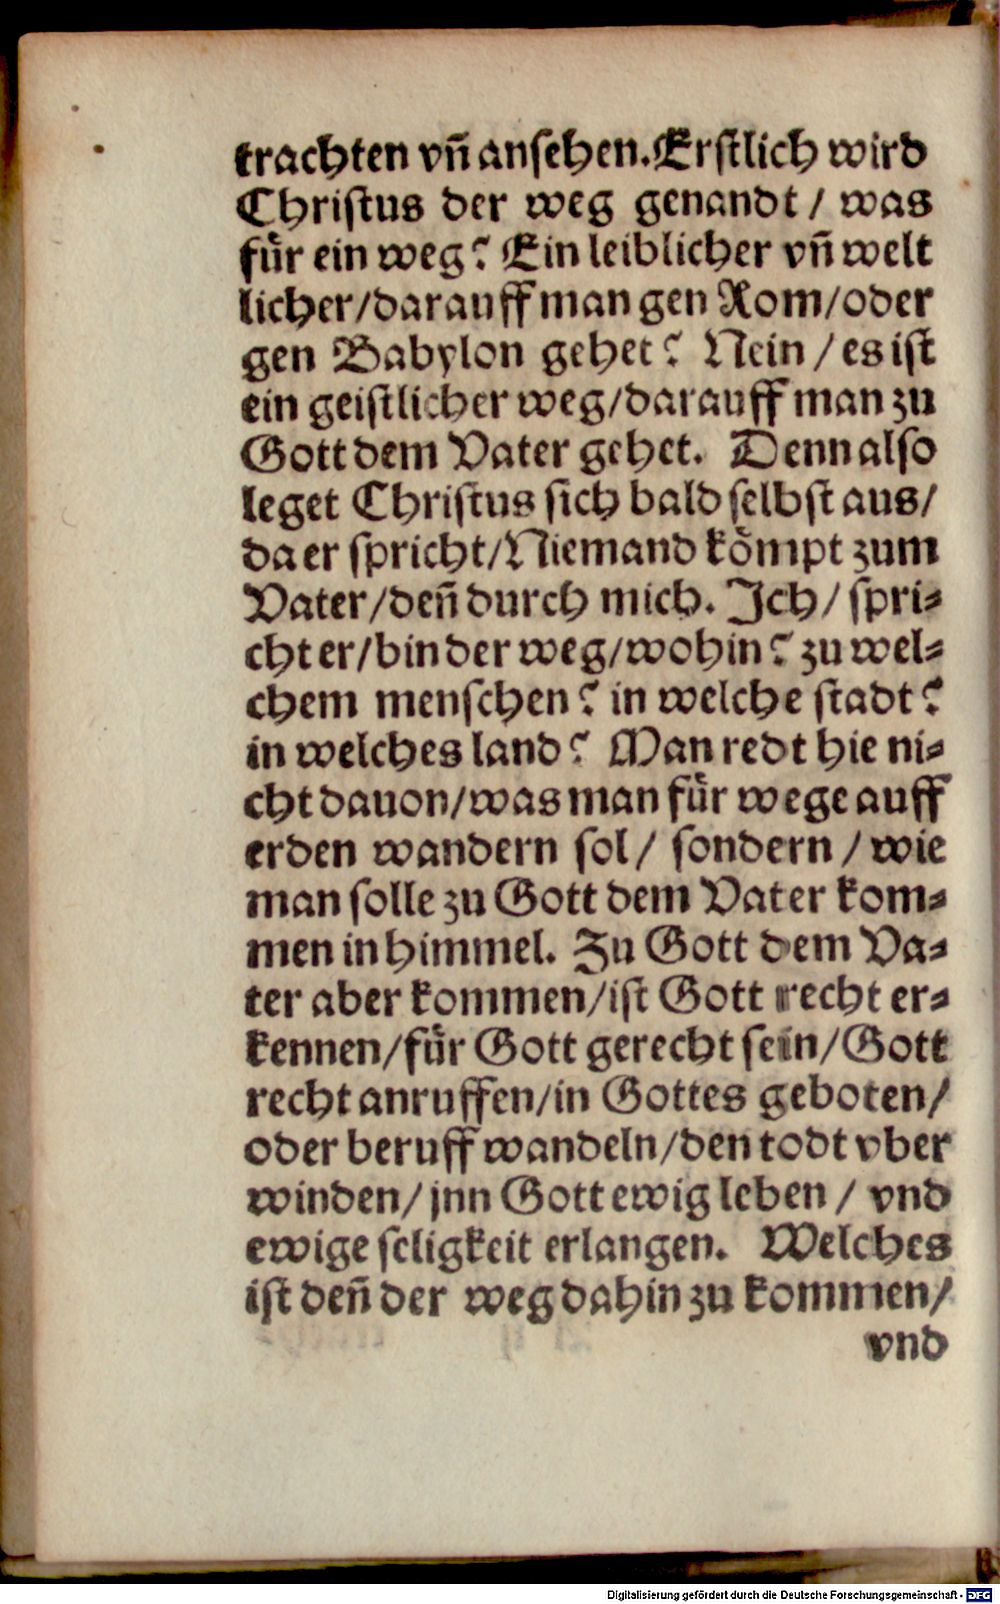 trachten vñ ansehen. Erstlich wird
Christus der weg genandt / was
für ein weg? Ein leiblicher vñ welt
licher/darauff man gen Rom/oder
gen Babylon gehet? Nein / es ist
ein geistlicher weg/darauff man zu
Gott dem Vater gehet. Denn also
leget Christus sich bald selbst aus/
da er spricht/Niemand kömpt zum
Vater/deñ durch mich. Ich/ spri-
cht er/bin der weg/wohin? zu wel-
chem menschen? in welche stadt?
in welches land? Man redt hie ni-
cht dauon/was man für wege auff
erden wandern sol/ sondern / wie
man solle zu Gott dem Vater kom-
men in himmel. Zu Gott dem Va-
ter aber kommen/ist Gott recht er-
kennen/für Gott gerecht sein/Gott
recht anruffen/in Gottes geboten/
oder beruff wandeln/den todt vber
winden/ jnn Gott ewig leben / vnd
ewige seligkeit erlangen. Welches
ist deñ der weg dahin zu kommen/
vnd
Digitalisierung gefördert durch die Deutsche Forschungsgemeinschaft - DFG